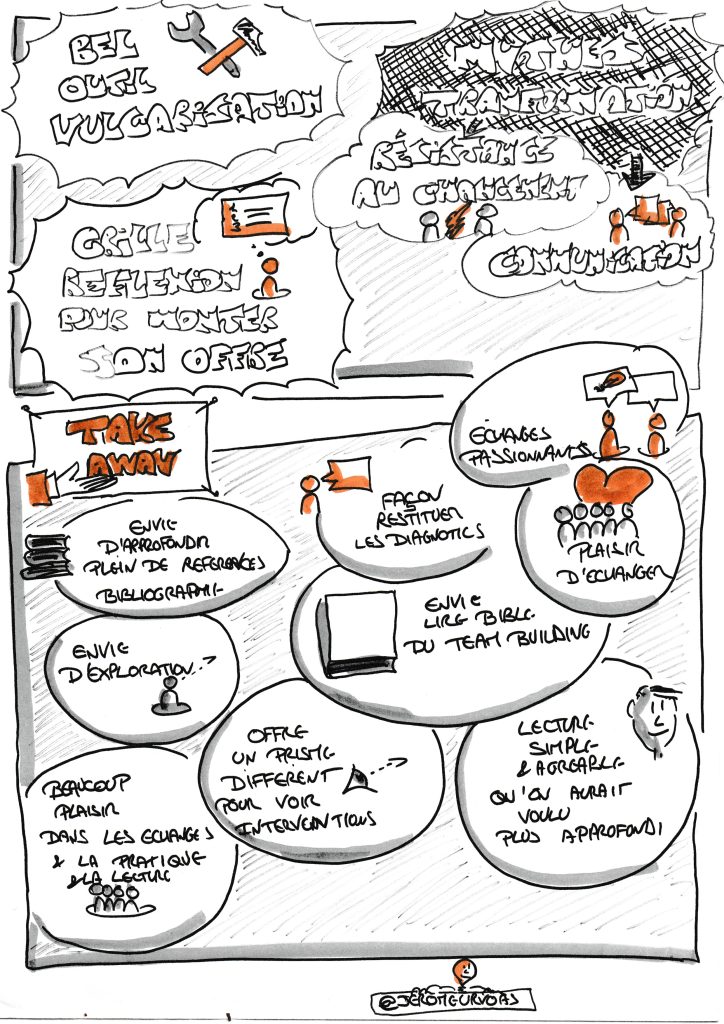 BEL
OUTIL
VULGARISATION
MYTHES
TRANSFORMATION
RÉSISTANCE
AU CHANGEMENT
COMMUNICATION
GRILLE
REFLEXION
POUR MONTER
SON OFFRE
TAKE
AWAY
ÉCHANGES
PASSIONNANTS
FAÇON
RESTITUER
LES DIAGNOTICS
PLAISIR
D'ECHANGER
ENVIE
D'APPROFONDIR
PLEIN DE REFERENCES
BIBLIOGRAPHIE
ENVIE
LIRE BIBLE
DU TEAM BUILDING
ENVIE
D'EXPLORATION
OFFRE
UN PRISME
DIFFERENT
POUR VOIR
INTERVENTIONS
LECTURE
SIMPLE
& AGREABLE
QU'ON AURAIT
VOULU
PLUS APPROFONDI
BEAUCOUP
PLAISIR
DANS LES ECHANGES
& LA PRATIQUE
& LA LECTURE